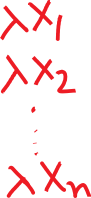 λx₁
λx₂
⋮
λxₙ